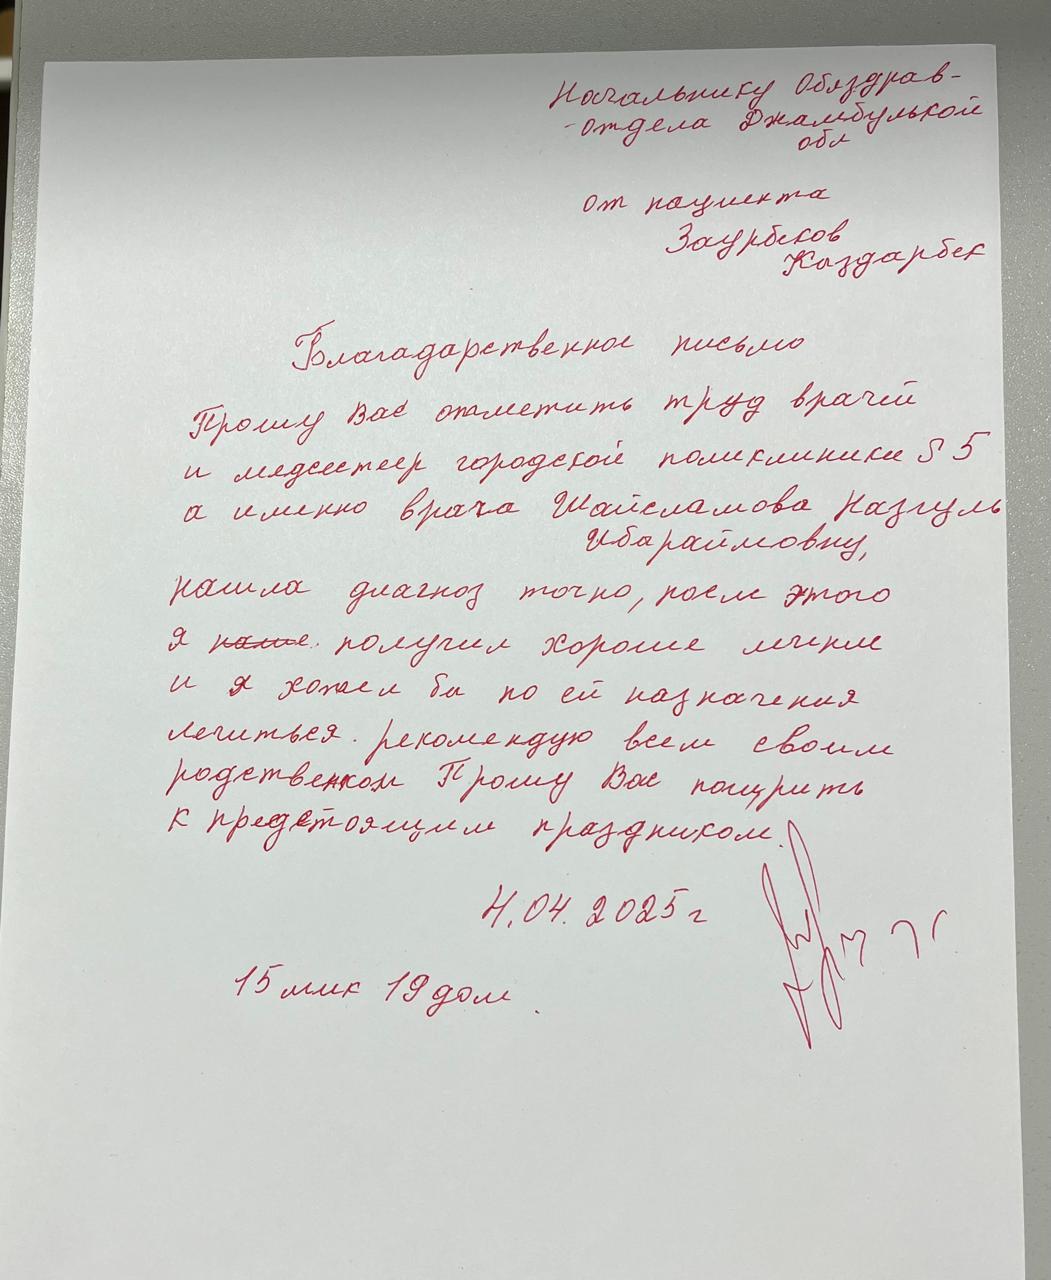 Начальнику Облздрав-
-отдела Джамбулькой
обл
от пациента
Заурбеков
Кыздарбек
Благадарственное письмо
Прошу Вас отметить труд врачей
и медсестеер городской поликлиники S 5
а именно врача Шайсламова Назгуль
Ибараймовну,
нашла диагноз точно, после этого
я получил хороше лечние
и я хотел бы по ей назначения
лечиться. рекомендую всем своим
родственком Прошу Вас пощрить
к предстоящим праздником.
4.04.2025 г
15 мик 19 дом.